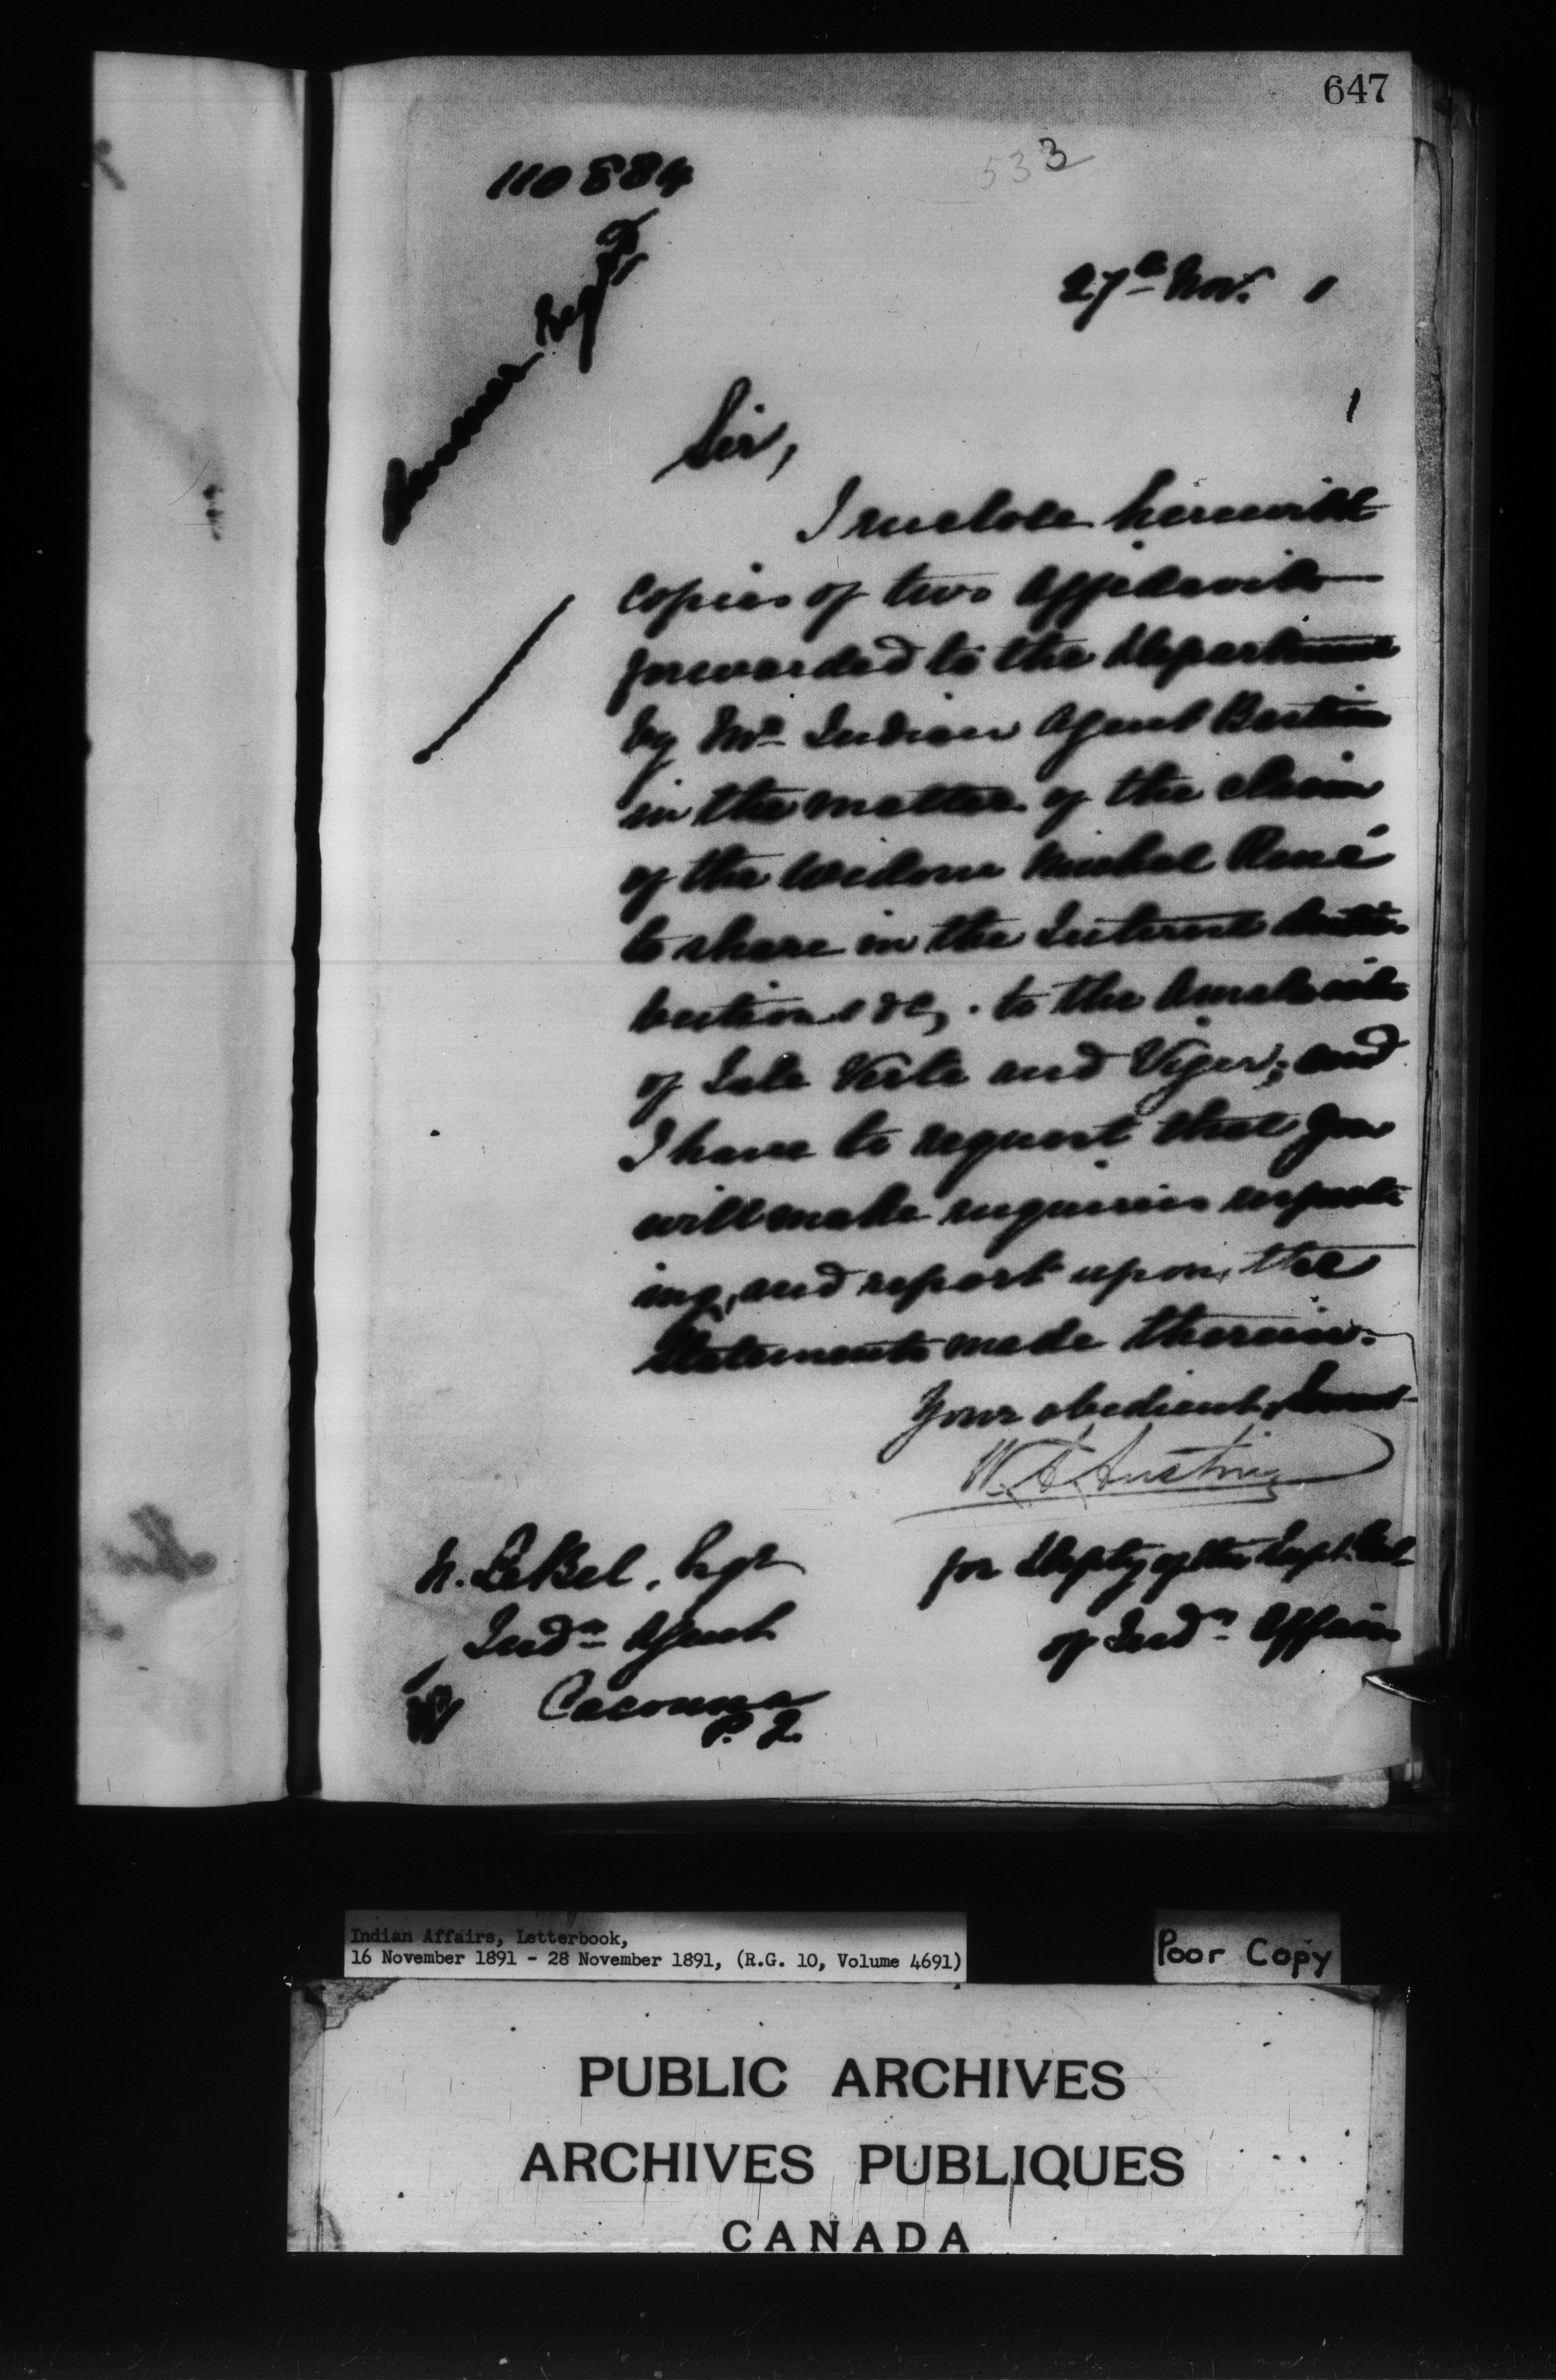 647
110884
533
27th Nov. 1
1
Sir,
I enclose herewith
copies of two Affidavits
forwarded to the Department
by Mr. Indian Agent Bastien
in the matter of the claim
of the Widow Michel René
to share in the Interest distri-
butions &c, to the Amalecites
of Isle Verte and Viger; and
I have to request that you
will make enquiries respect-
ing, and report upon, the
Statements made therein.
Your obedient Servant
W. A. Austin
for Depty of the Supt. Genl
of Indn Affairs
N. LeBel, Esqr
Indn Agent
Cacouna
P. Q.
Indian Affairs, Letterbook,
16 November 1891 - 28 November 1891, (R.G. 10, Volume 4691)
Poor Copy
PUBLIC ARCHIVES
ARCHIVES PUBLIQUES
CANADA